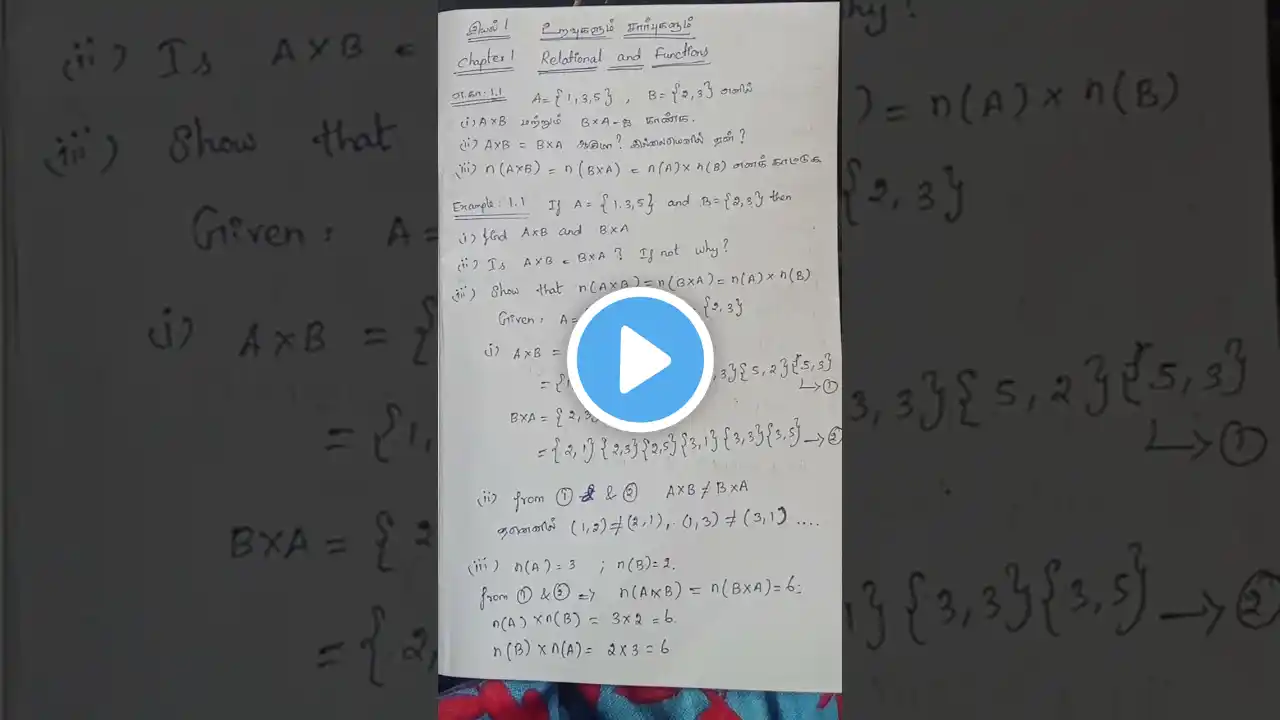 இயல் 1 உறவுகளும் சார்புகளும்
Chapter 1 Relational and Functions
எ.கா: 1.1 A = {1, 3, 5} , B = {2, 3} எனில்
(i) A×B மற்றும் B×A-ஐ காண்க.
(ii) A×B = B×A ஆகுமா? இல்லையெனில் ஏன்?
(iii) n(A×B) = n(B×A) = n(A)×n(B) எனக் காட்டுக
Example: 1.1 If A = {1.3,5} and B = {2,3} then
(i) find A×B and B×A
(ii) Is A×B = B×A? If not why?
(iii) Show that n(A×B) = n(B×A) = n(A)×n(B)
Given: A = {2,3}
(i) A×B =
= {1, ,3}{5,2}{5,3}
→①
B×A = {2,3
= {2,1}{2,3}{2,5}{3,1}{3,3}{3,5} →②
(ii) from ① & ② A×B ≠ B×A
(1,2) ≠ (2,1), (1,3) ≠ (3,1) ....
(iii) n(A) = 3 ; n(B) = 2.
from ① & ② => n(A×B) = n(B×A) = 6.
n(A) × n(B) = 3×2 = 6.
n(B) × n(A) = 2×3 = 6